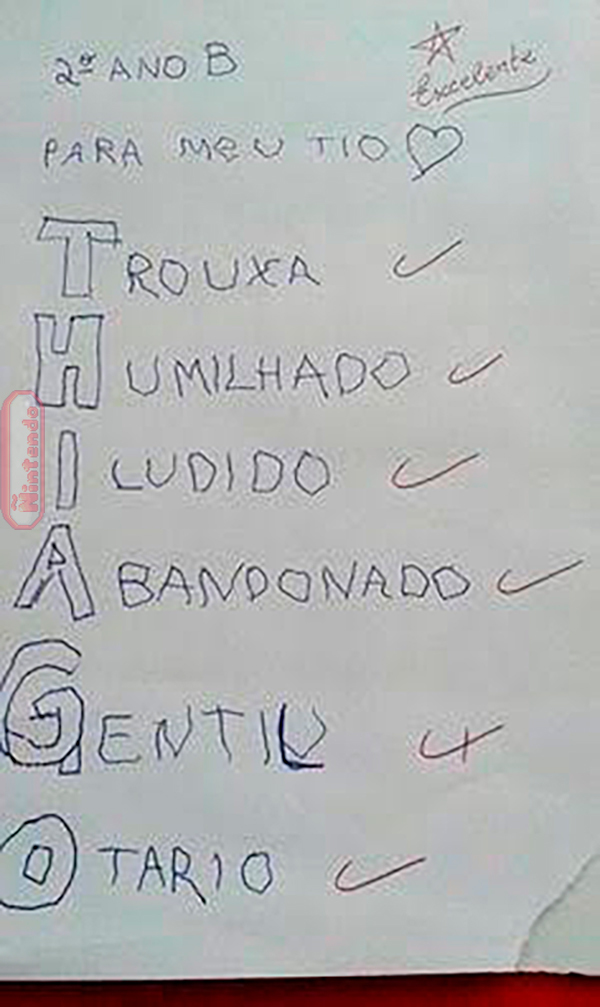 2º ANO B
Excelente
PARA MEU TIO
TROUXA
HUMILHADO
ILUDIDO
Ñintendo
ABANDONADO
GENTIL
OTARIO